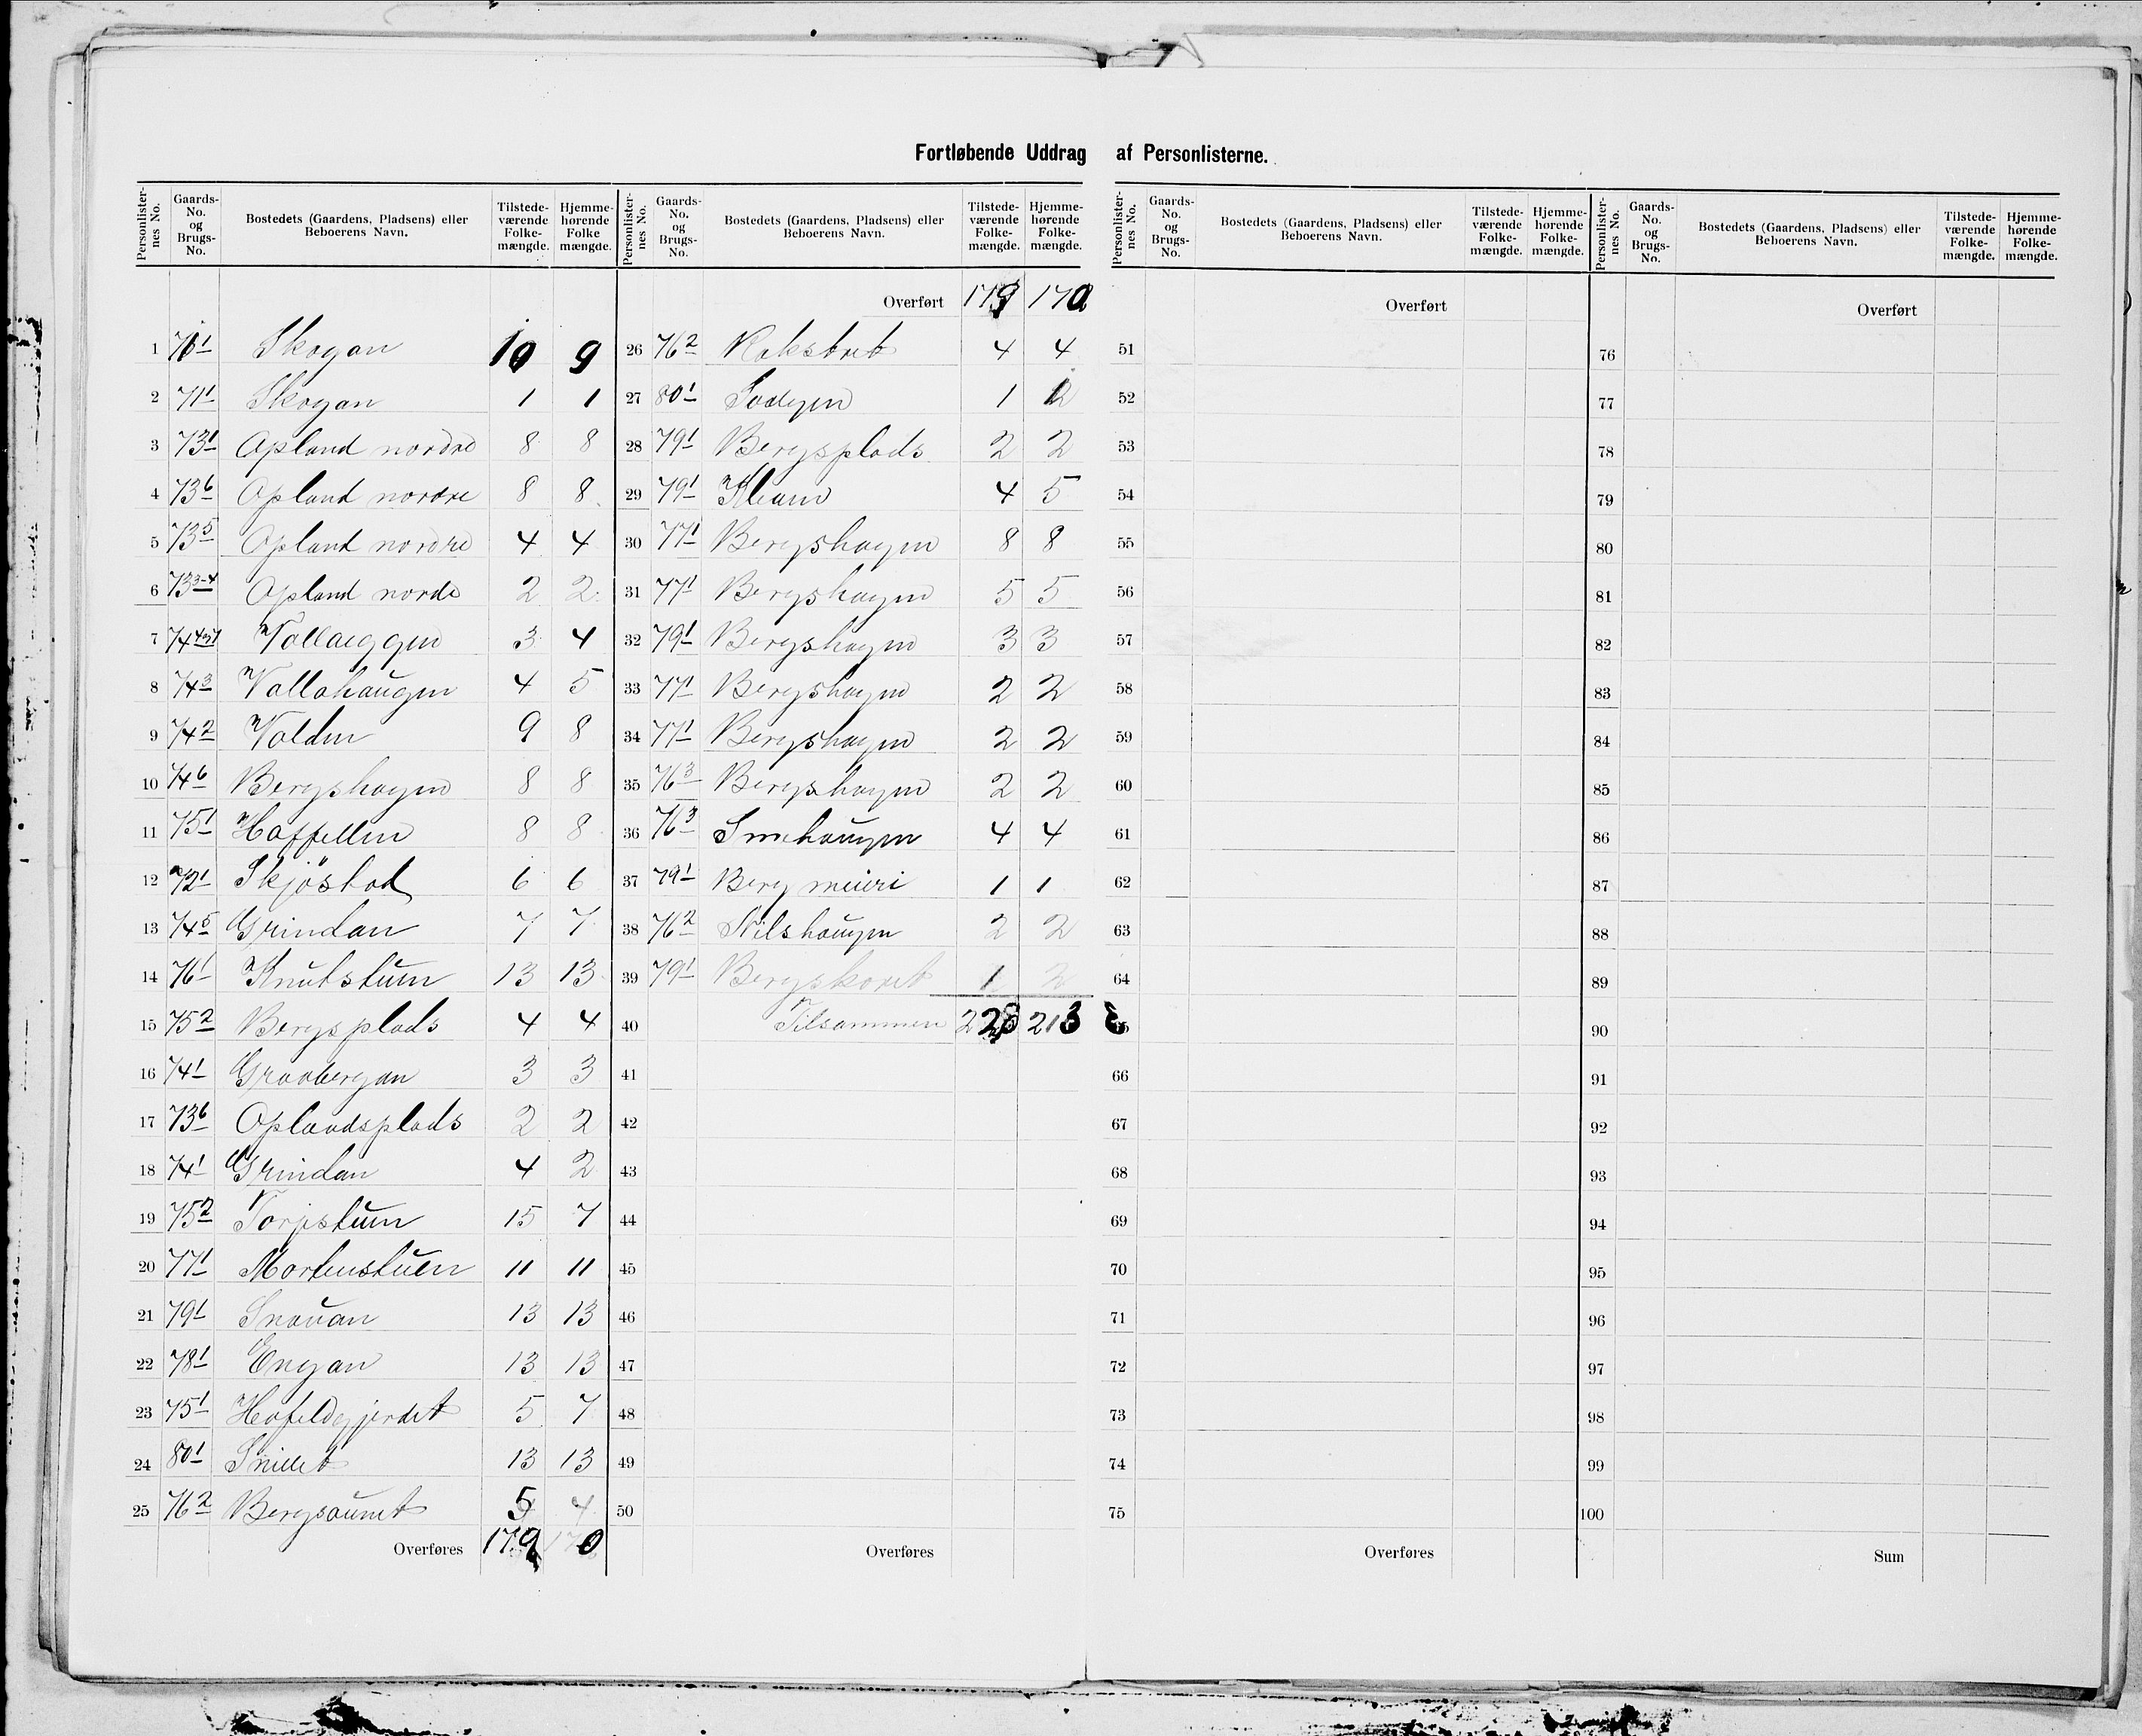 Fortløbende Uddrag af Personlisterne.
Personlisternes No. Gaards-No. og Brugs-No. Bostedets (Gaardens, Pladsens) eller Beboerens Navn. Tilstedeværende Folkemængde. Hjemmehørende Folke mængde.
1 70¹ Skogan 10 9
2 71¹ Skogan 1 1
3 73¹ Opland nordre 8 8
4 73⁶ Opland nordre 8 8
5 73⁵ Opland nordre 4 4
6 73³⁻⁴ Opland nordre 2 2
7 74 Vollaeggen 3 4
8 74³ Vollahaugen 4 5
9 74² Volden 9 8
10 74⁶ Bergshagen 8 8
11 75¹ Haffellen 8 8
12 72¹ Skjöstad 6 6
13 74⁵ Grindan 7 7
14 76¹ Knutstuen 13 13
15 75² Bergsplads 4 4
16 74¹ Graabergan 3 3
17 73⁶ Oplandsplads 2 2
18 74¹ Grindan 4 2
19 75² Torpstuen 15 7
20 77¹ Mortenstuen 11 11
21 79¹ Snauan 13 13
22 78¹ Engan 13 13
23 75¹ Hafeldgjerdet 5 7
24 80¹ 13 13
25 76² Bergsaunet 5 4
Overføres 179 170
Personlisternes No. Gaards-No. og Brugs-No. Bostedets (Gaardens, Pladsens) eller Beboerens Navn. Tilstedeværende Folkemængde. Hjemmehørende Folkemængde.
Overført 179 170
26 76² Rokstret 4 4
27 80¹ 1 2
28 79¹ Bergsplads 2 2
29 79¹ Kleiva 4 5
30 77¹ Bergshagen 8 8
31 77¹ Bergshagen 5 5
32 79¹ Bergshagen 3 3
33 77¹ Bergshagen 2 2
34 77¹ Bergshagen 2 2
35 76³ Bergshagen 2 2
36 76³ Smehaugen 4 4
37 79¹ Berg meieri 1 1
38 76² Nilshaugen 2 2
39 79¹ Bergskoret 1 2
40 Tilsammen 213
41
42
43
44
45
46
47
48
49
50
Overføres
Personlisternes No. Gaards-No. og Brugs-No. Bostedets (Gaardens, Pladsens) eller Beboerens Navn. Tilstedeværende Folkemængde. Hjemmehørende Folkemængde.
Overført
51
52
53
54
55
56
57
58
59
60
61
62
63
64
66
67
68
69
70
71
72
73
74
75
Overføres
Personlisternes No. Gaards-No. og Brugs-No. Bostedets (Gaardens, Pladsens) eller Beboerens Navn. Tilstedeværende Folkemængde. Hjemmehørende Folkemængde.
Overført
76
77
78
79
80
81
82
83
84
85
86
87
88
89
90
91
92
93
94
95
96
97
98
99
100
Sum